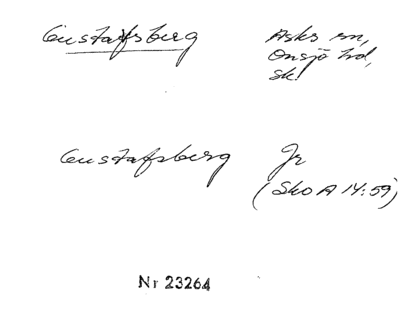 Gustafsberg Asks sn,
Onsjö hd,
Sk.
Gustafsberg Jr
(Sko A 14:59)
Nr 23264